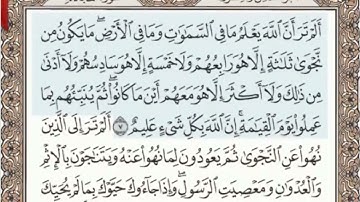 أَلَمْ تَرَ أَنَّ ٱللَّهَ يَعْلَمُ مَا فِى ٱلسَّمَٰوَٰتِ وَمَا فِى ٱلْأَرْضِ ۖ مَا يَكُونُ مِن
نَّجْوَىٰ ثَلَٰثَةٍ إِلَّا هُوَ رَابِعُهُمْ وَلَا خَمْسَةٍ إِلَّا هُوَ سَادِسُهُمْ وَلَآ أَدْنَىٰ
مِن ذَٰلِكَ وَلَآ أَكْثَرَ إِلَّا هُوَ مَعَهُمْ أَيْنَ مَا كَانُوا۟ ۖ ثُمَّ يُنَبِّئُهُم بِمَا
عَمِلُوا۟ يَوْمَ ٱلْقِيَٰمَةِ ۚ إِنَّ ٱللَّهَ بِكُلِّ شَىْءٍ عَلِيمٌ ٧ أَلَمْ تَرَ إِلَى ٱلَّذِينَ
نُهُوا۟ عَنِ ٱلنَّجْوَىٰ ثُمَّ يَعُودُونَ لِمَا نُهُوا۟ عَنْهُ وَيَتَنَٰجَوْنَ بِٱلْإِثْمِ
وَٱلْعُدْوَٰنِ وَمَعْصِيَتِ ٱلرَّسُولِ ۖ وَإِذَا جَآءُوكَ حَيَّوْكَ بِمَا لَمْ يُحَيِّكَ